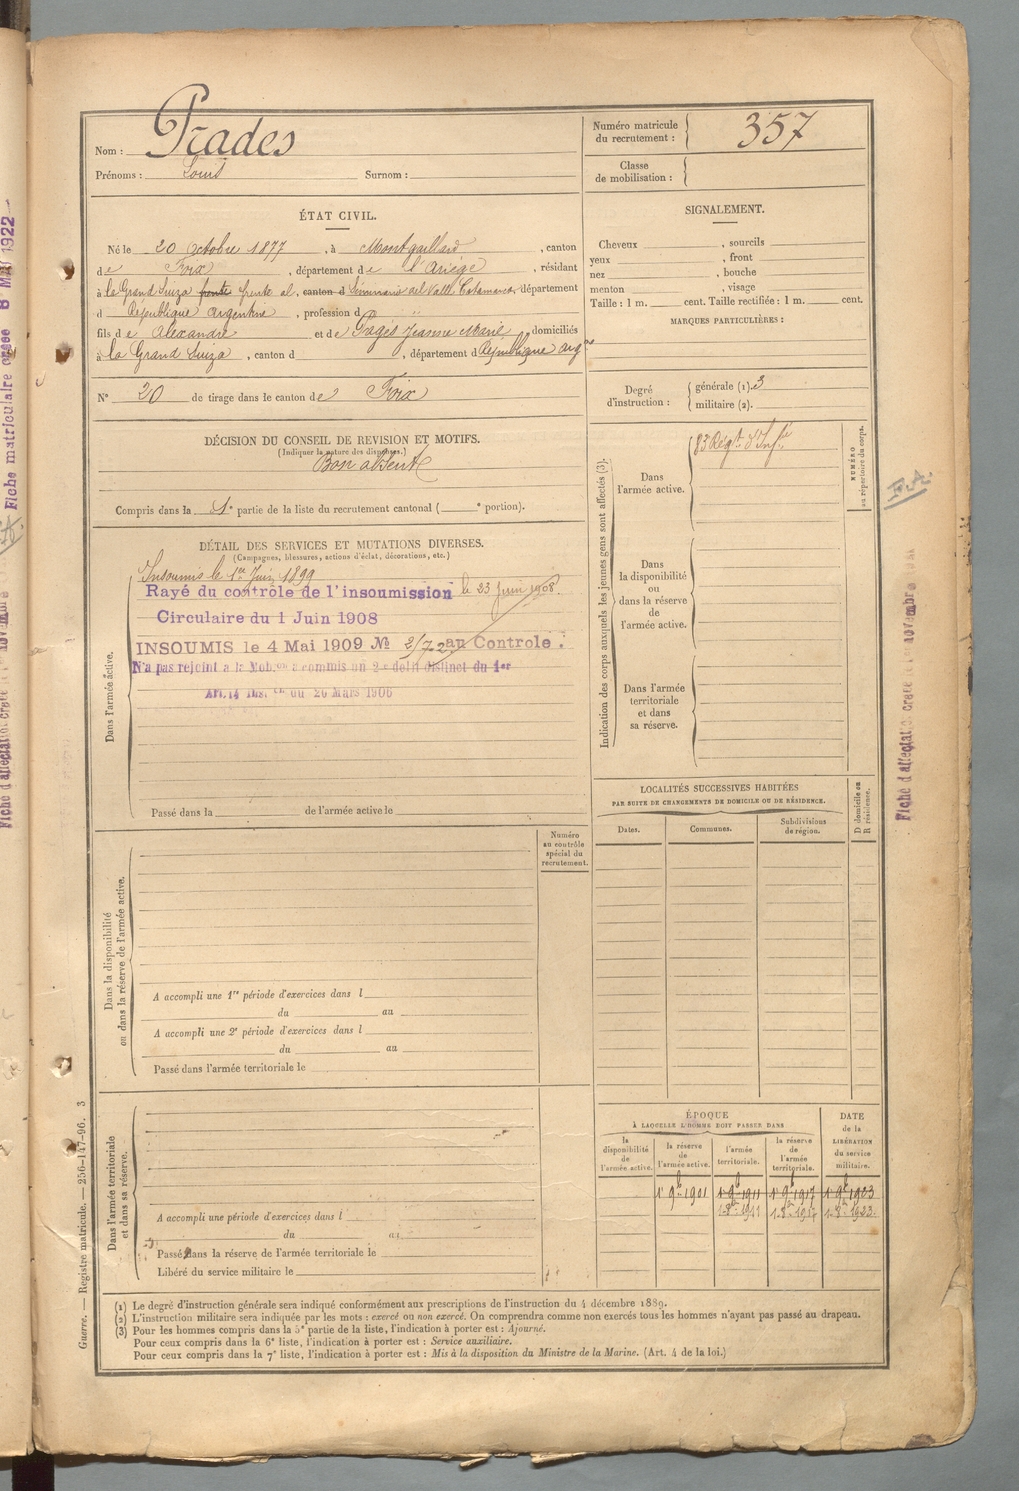 Nom : Prades
Prénoms : Louis Surnom :
Numéro matricule du recrutement : 357
Classe de mobilisation :
ÉTAT CIVIL.
Né le 20 Octobre 1877, à Montgaillard, canton
de Foix, département de l'Ariège, résidant
à la Grand Suiza frente al, canton d Seminario del Valle Catamarca, département
d République Argentine, profession d "
fils de Alexandre et de Pagès Jeanne Marie domiciliés
à la Grand Suiza, canton d , département d République arg^ne
N° 20 de tirage dans le canton de Foix
SIGNALEMENT.
Cheveux , sourcils
yeux , front
nez , bouche
menton , visage
Taille : 1 m. cent. Taille rectifiée : 1 m. cent.
MARQUES PARTICULIÈRES :
Degré d'instruction : générale (1). 3
militaire (2).
DÉCISION DU CONSEIL DE REVISION ET MOTIFS.
(Indiquer la nature des dispenses.)
Bon absent
Compris dans la 1e partie de la liste du recrutement cantonal ( e portion).
DÉTAIL DES SERVICES ET MUTATIONS DIVERSES.
(Campagnes, blessures, actions d'éclat, décorations, etc.)
Dans l'armée active.
Insoumis le 1er Juin 1899
Rayé du contrôle de l'insoumission le 23 Juin 1908.
Circulaire du 1 Juin 1908
INSOUMIS le 4 Mai 1909 № au Controle.
N'a pas rejoint a la Mob.on a commis un 2e delit distinct du 1er
Art. 14 Ins.on du 20 Mars 1906
Passé dans la de l'armée active le
Indication des corps auxquels les jeunes gens sont affectés (3).
NUMÉRO au répertoire du corps.
Dans l'armée active.
83 Régt. d'Inf.ie
Dans la disponibilité ou dans la réserve de l'armée active.
Dans l'armée territoriale et dans sa réserve.
LOCALITÉS SUCCESSIVES HABITÉES
PAR SUITE DE CHANGEMENTS DE DOMICILE OU DE RÉSIDENCE.
Dates. Communes. Subdivisions de région.
D domicile ou R résidence.
Dans la disponibilité ou dans la réserve de l'armée active.
Numéro au contrôle spécial du recrutement.
A accompli une 1re période d'exercices dans l
du au
A accompli une 2e période d'exercices dans l
du au
Passé dans l'armée territoriale le
Dans l'armée territoriale et dans sa réserve.
A accompli une période d'exercices dans l
du au
Passé dans la réserve de l'armée territoriale le
Libéré du service militaire le
ÉPOQUE
À LAQUELLE L'HOMME DOIT PASSER DANS
la disponibilité de l'armée active.
la réserve de l'armée active.
l'armée territoriale.
la réserve de l'armée territoriale.
DATE de la LIBÉRATION du service militaire.
1er 9bre 1901 1er 9bre 1911 1er 9bre 1917 1er 9bre 1923
1 8bre 1911 1 8bre 1917 1 8bre 1923
(1) Le degré d'instruction générale sera indiqué conformément aux prescriptions de l'instruction du 4 décembre 1889.
(2) L'instruction militaire sera indiquée par les mots : exercé ou non exercé. On comprendra comme non exercés tous les hommes n'ayant pas passé au drapeau.
(3) Pour les hommes compris dans la 5e partie de la liste, l'indication à porter est : Ajourné.
Pour ceux compris dans la 6e liste, l'indication à porter est : Service auxiliaire.
Pour ceux compris dans la 7e liste, l'indication à porter est : Mis à la disposition du Ministre de la Marine. (Art. 4 de la loi.)
Guerre. — Registre matricule. — 256-147-96. 3
F.A.
Fiche d'affectation créée le novembre
Fiche matriculaire créée 8 MAI 1922
Fiche d'affectation créée le novembre